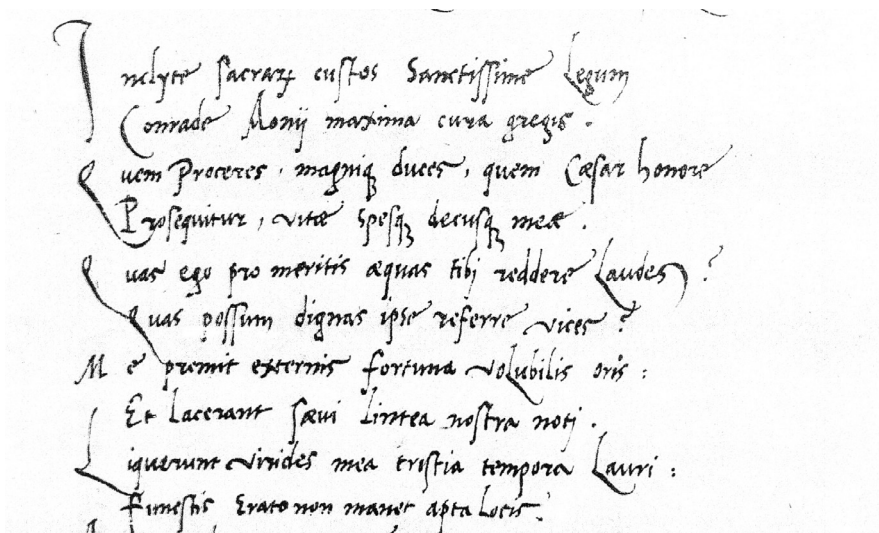 Inclyte sacraꝝ custos Sanctissime Legum
Conrade Aonij maxima cura gregis.
Quem Proceres, magniqꝫ duces, quem Cæsar honore
Prosequitur, vitæ spesqꝫ decusqꝫ meæ.
Quas ego pro meritis æquas tibj reddere Laudes?
Quas possum dignas ipse referre vices?
Me premit externis fortuna volubilis oris:
Et lacerant sævi lintea nostra notj.
Liquerunt virides mea tristia tempora Lauri:
Funestis Erato non manet apta locis.